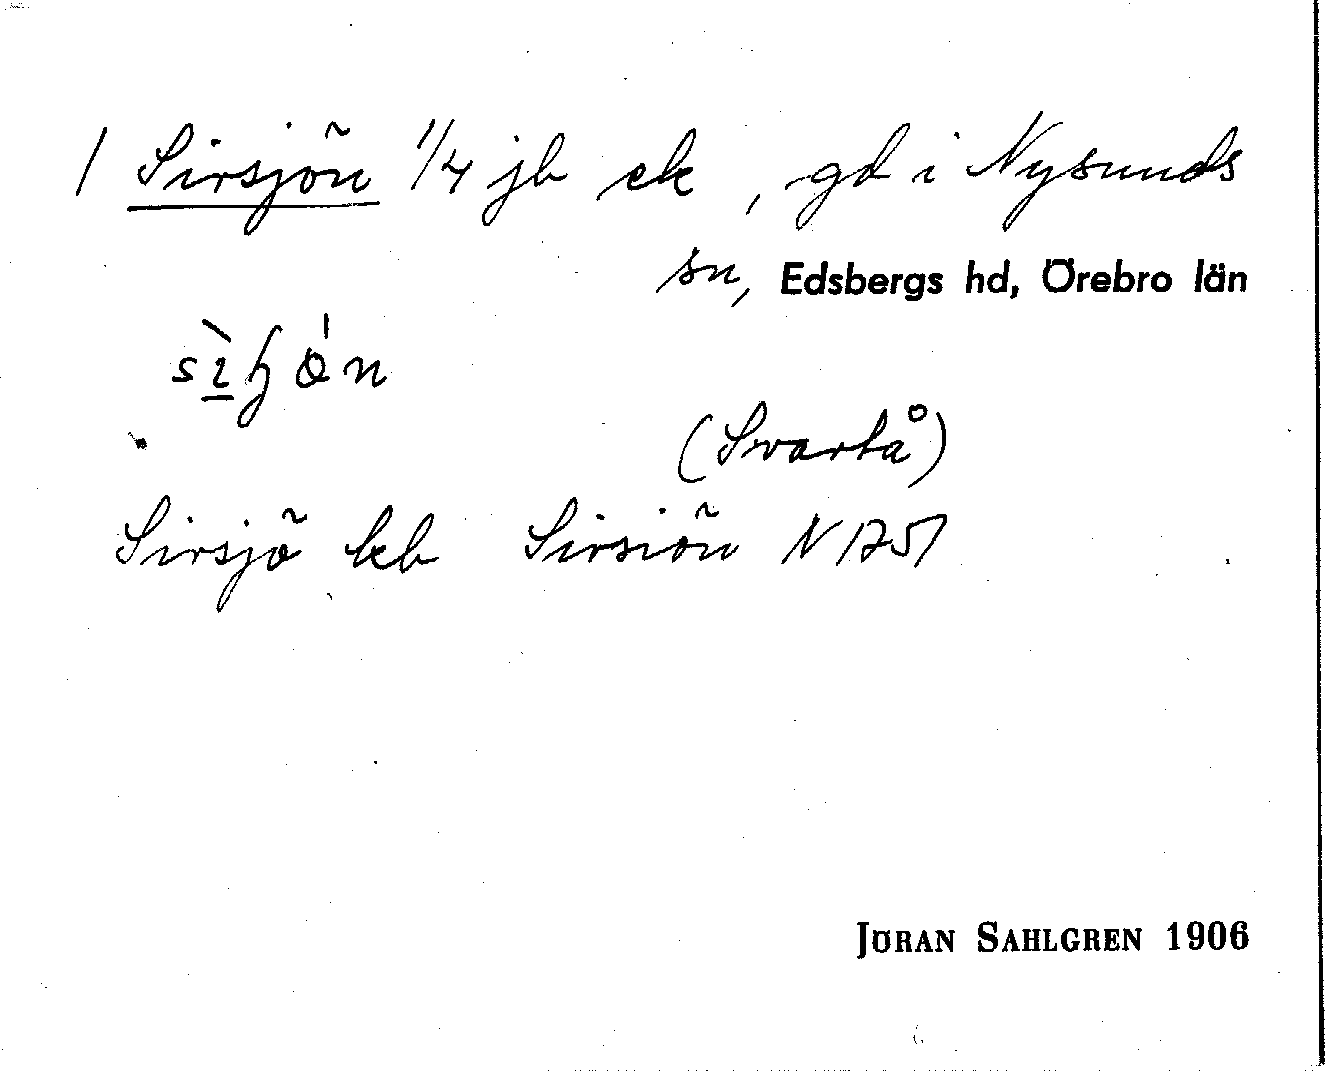 1 Sirsjön 1/4 jb ek, gd i Nysunds
sn, Edsbergs hd, Örebro län
(Svartå)
Sirsjö kb Sirsiön N 1751
JÖRAN SAHLGREN 1906